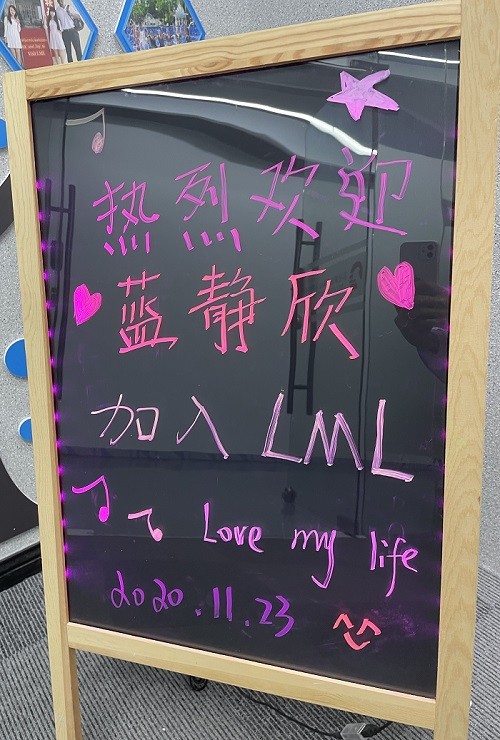 热烈欢迎
蓝静欣
加入 LML
Love my life
2020.11.23